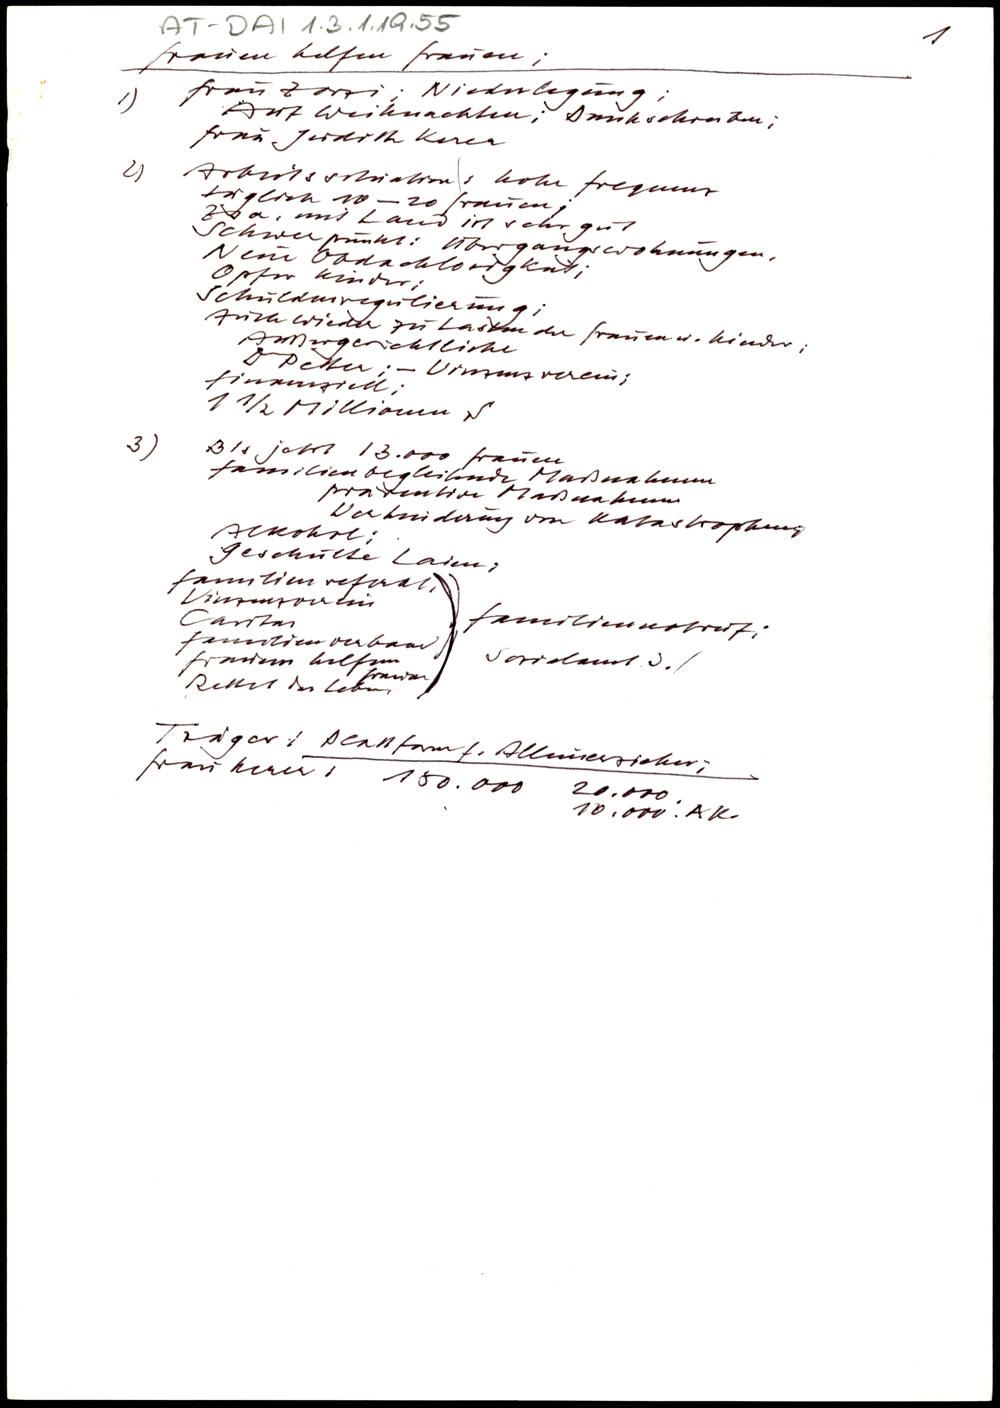 AT-DAI 1.3.1.19.55
1
Frauen helfen Frauen;
1) Frau Zorzi; Niederlegung;
Auf Weihnachten; Dankschreiben;
Frau Judith Kerer
2) Arbeitssituation: hohe Frequenz
täglich 10 – 20 Frauen;
Zsa. mit Land ist sehr gut
Schwerpunkt: Übergangswohnungen.
Neue Obdachlosigkeit;
Opfer Kinder;
Schuldenregulierung;
Auch wieder zu Lasten der Frauen u. Kinder;
Außergerichtliche
; – Vinzenzverein;
Finanziell;
1 1/2 Millionen S
3) Bis jetzt 13.000 Frauen
Familienbegleitende Maßnahmen
präventive Maßnahmen
Verhinderung von Katastrophen;
Alkohol;
Geschulte Laien;
Familienreferat,
Vinzenzverein
Caritas
Familienverband
Frauen helfen
Frauen
Rettet das Leben
Familiennotruf;
Sozialamt
Träger: Plattform f. Alleinerzieher;
Frau Kerer: 180.000 20.000.
10.000. AK.